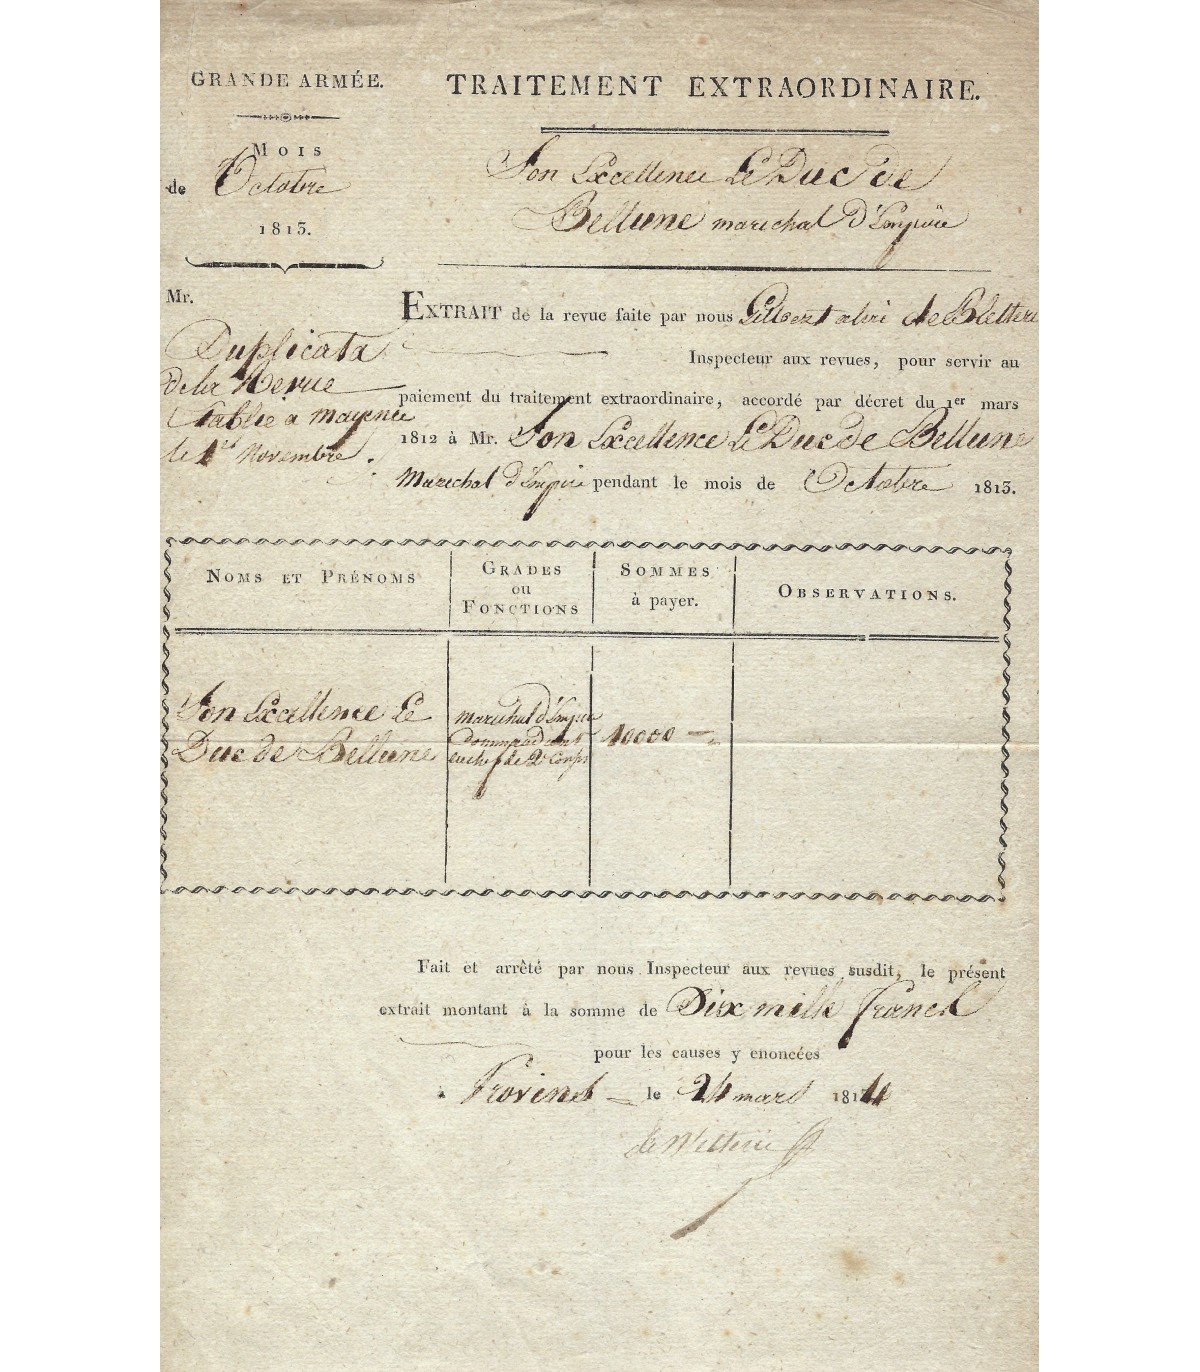 GRANDE ARMÉE.
TRAITEMENT EXTRAORDINAIRE.
MOIS
de Octobre
1813.
Son Excellence Le Duc de
Bellune marechal d'Empire
Mr.
Duplicata
de la Revue
Etablie a mayence
le 1er Novembre.
EXTRAIT de la revue faite par nous Gilbert
Inspecteur aux revues, pour servir au
paiement du traitement extraordinaire, accordé par décret du 1er mars
1812 à Mr. Son Excellence Le Duc de Bellune
Marechal d'Empire pendant le mois de Octobre 1813.
NOMS ET PRÉNOMS
GRADES
OU
FONCTIONS
SOMMES
à payer.
OBSERVATIONS.
Son Excellence Le
Duc de Bellune
marechal d'Empire
Commandant
en chef le 2e Corps
10000 —
Fait et arrêté par nous Inspecteur aux revues susdit, le présent
extrait montant à la somme de Dix mille Francs
pour les causes y enoncées
à Provins — le 24 mars 1814